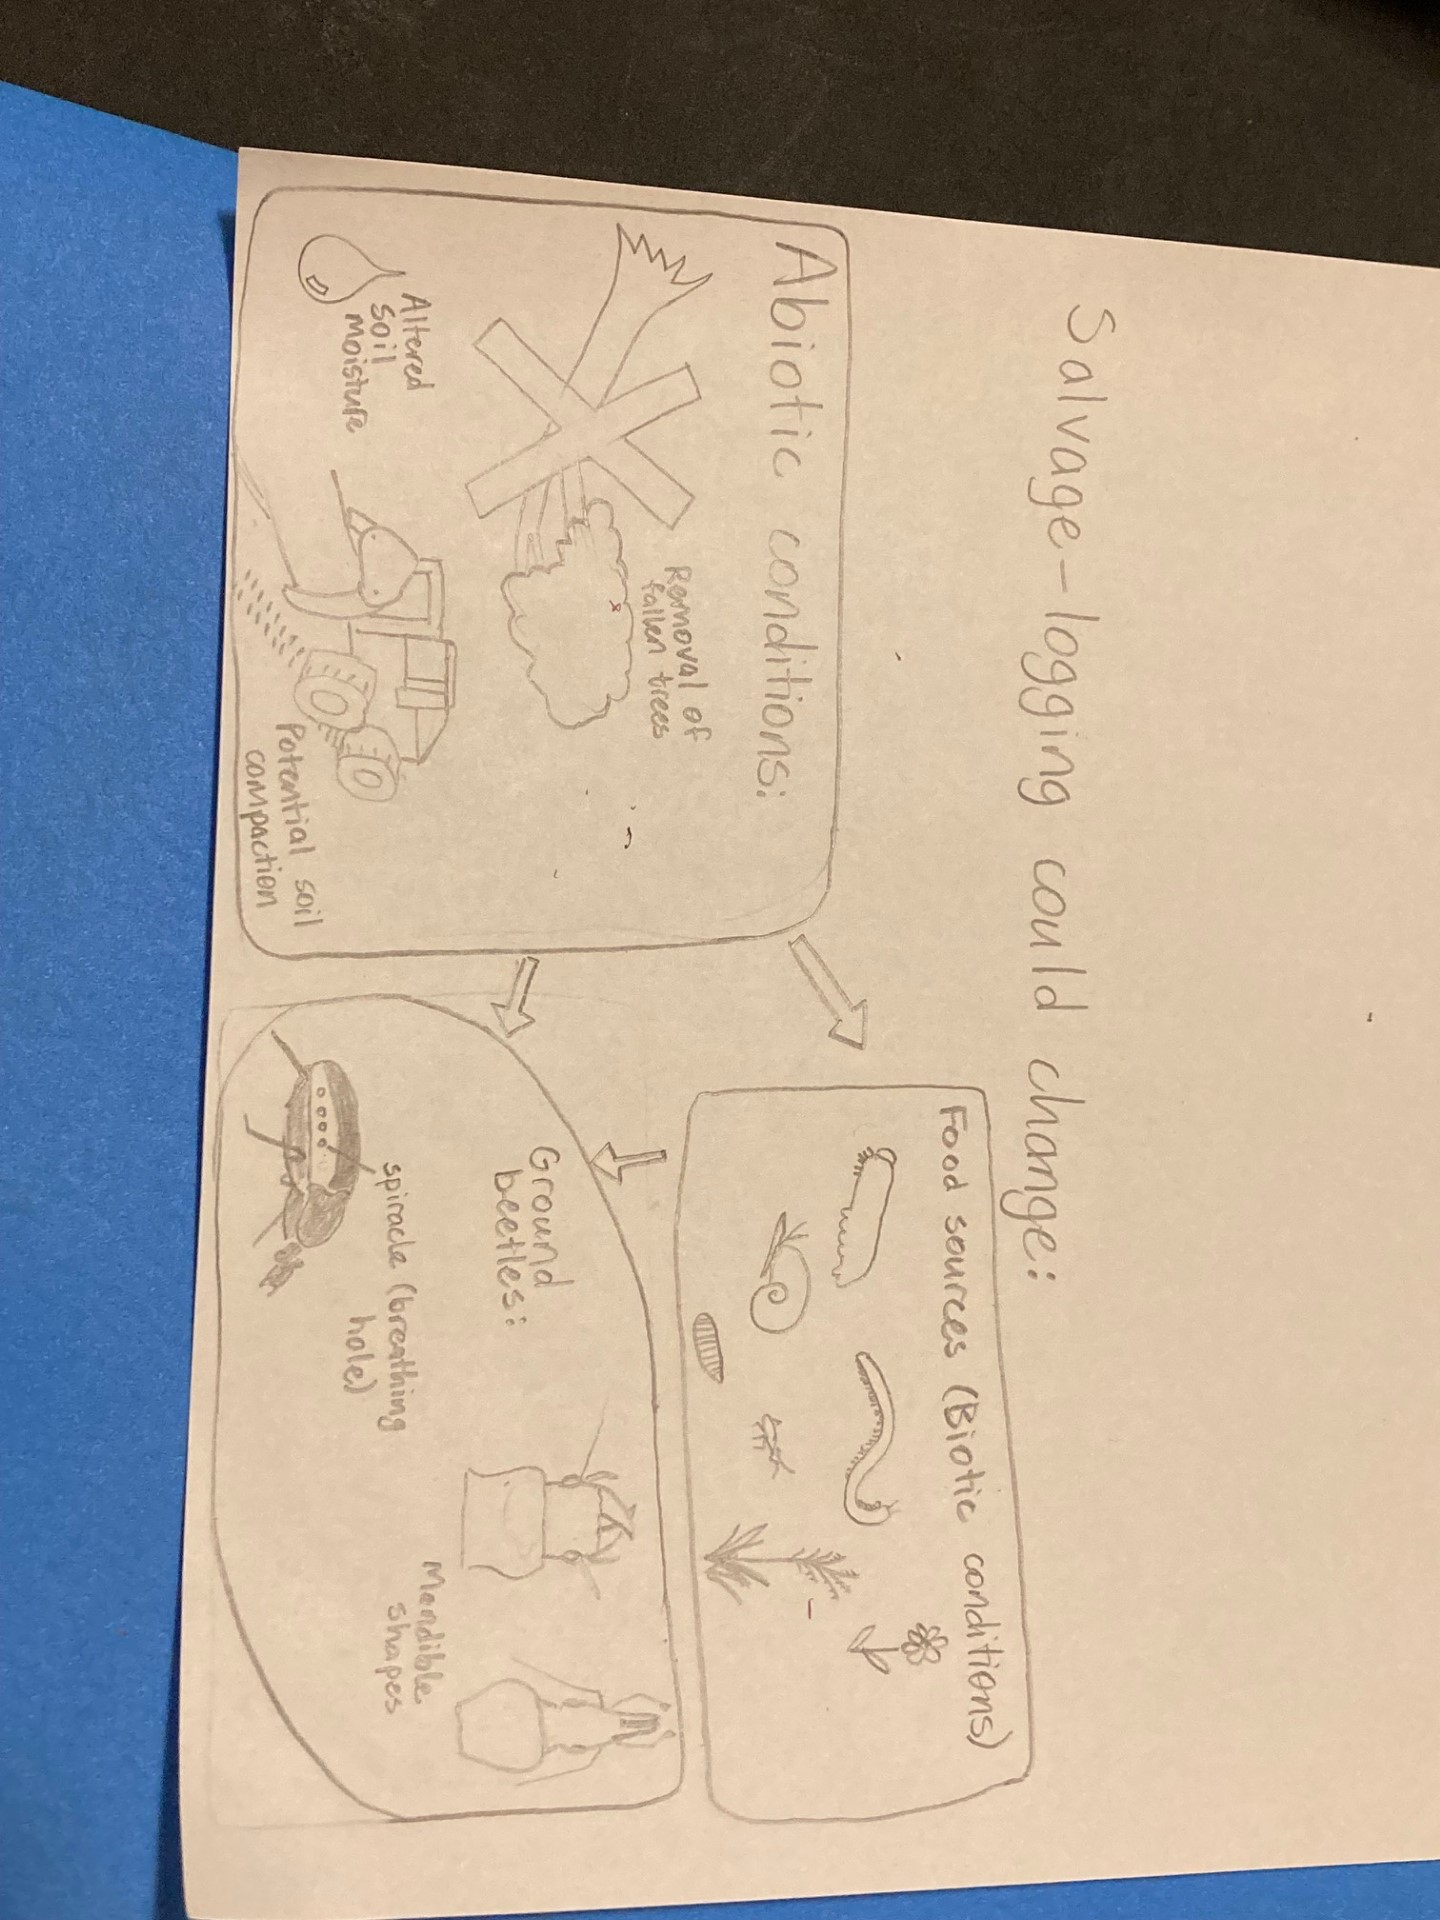 Salvage-logging could change:
Abiotic conditions:
Removal of
fallen trees
Altered
soil
moisture
Potential soil
compaction
Food sources (Biotic conditions)
Ground
beetles:
spiracle (breathing
hole)
Mandible
shapes